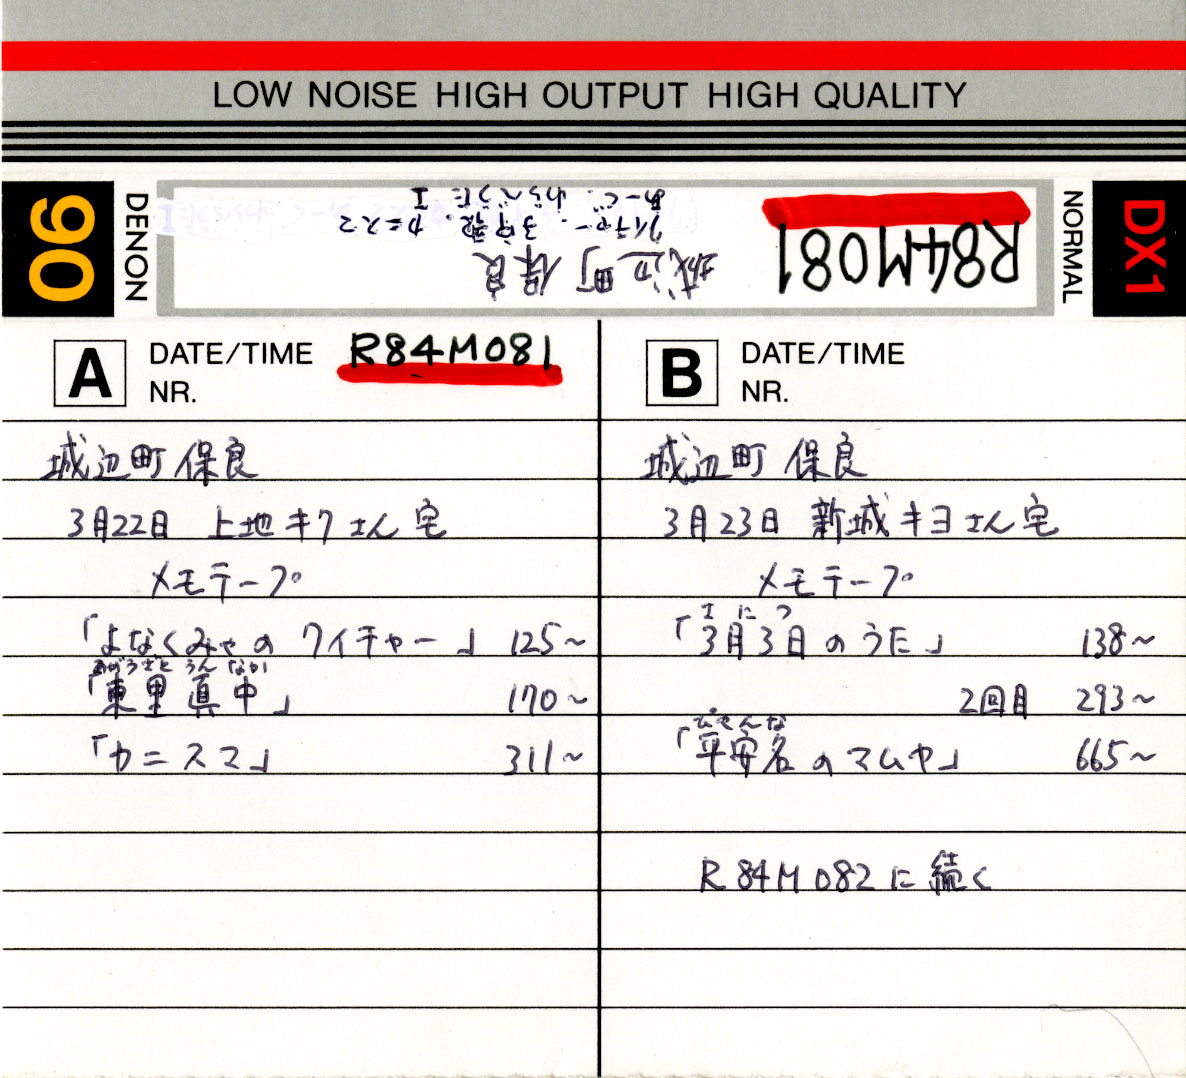 LOW NOISE HIGH OUTPUT HIGH QUALITY
90
DENON
R84M081
城辺町保良
クイチャー. 3守歌. カニスマ
あーぐ. わらべうた I
NORMAL
DX1
A DATE/TIME R84M081
NR.
城辺町保良
3月22日 上地キクさん宅
メモテープ
「よなくみゃの クイチャー」 125~
あがりざと うん なか
「東里真中」 170~
「カニスマ」 311~
B DATE/TIME
NR.
城辺町 保良
3月23日 新城キヨさん宅
メモテープ
「3月3日のうた」 138~
2回目 293~
「平安名のマムヤ」 665~
R84M082に続く